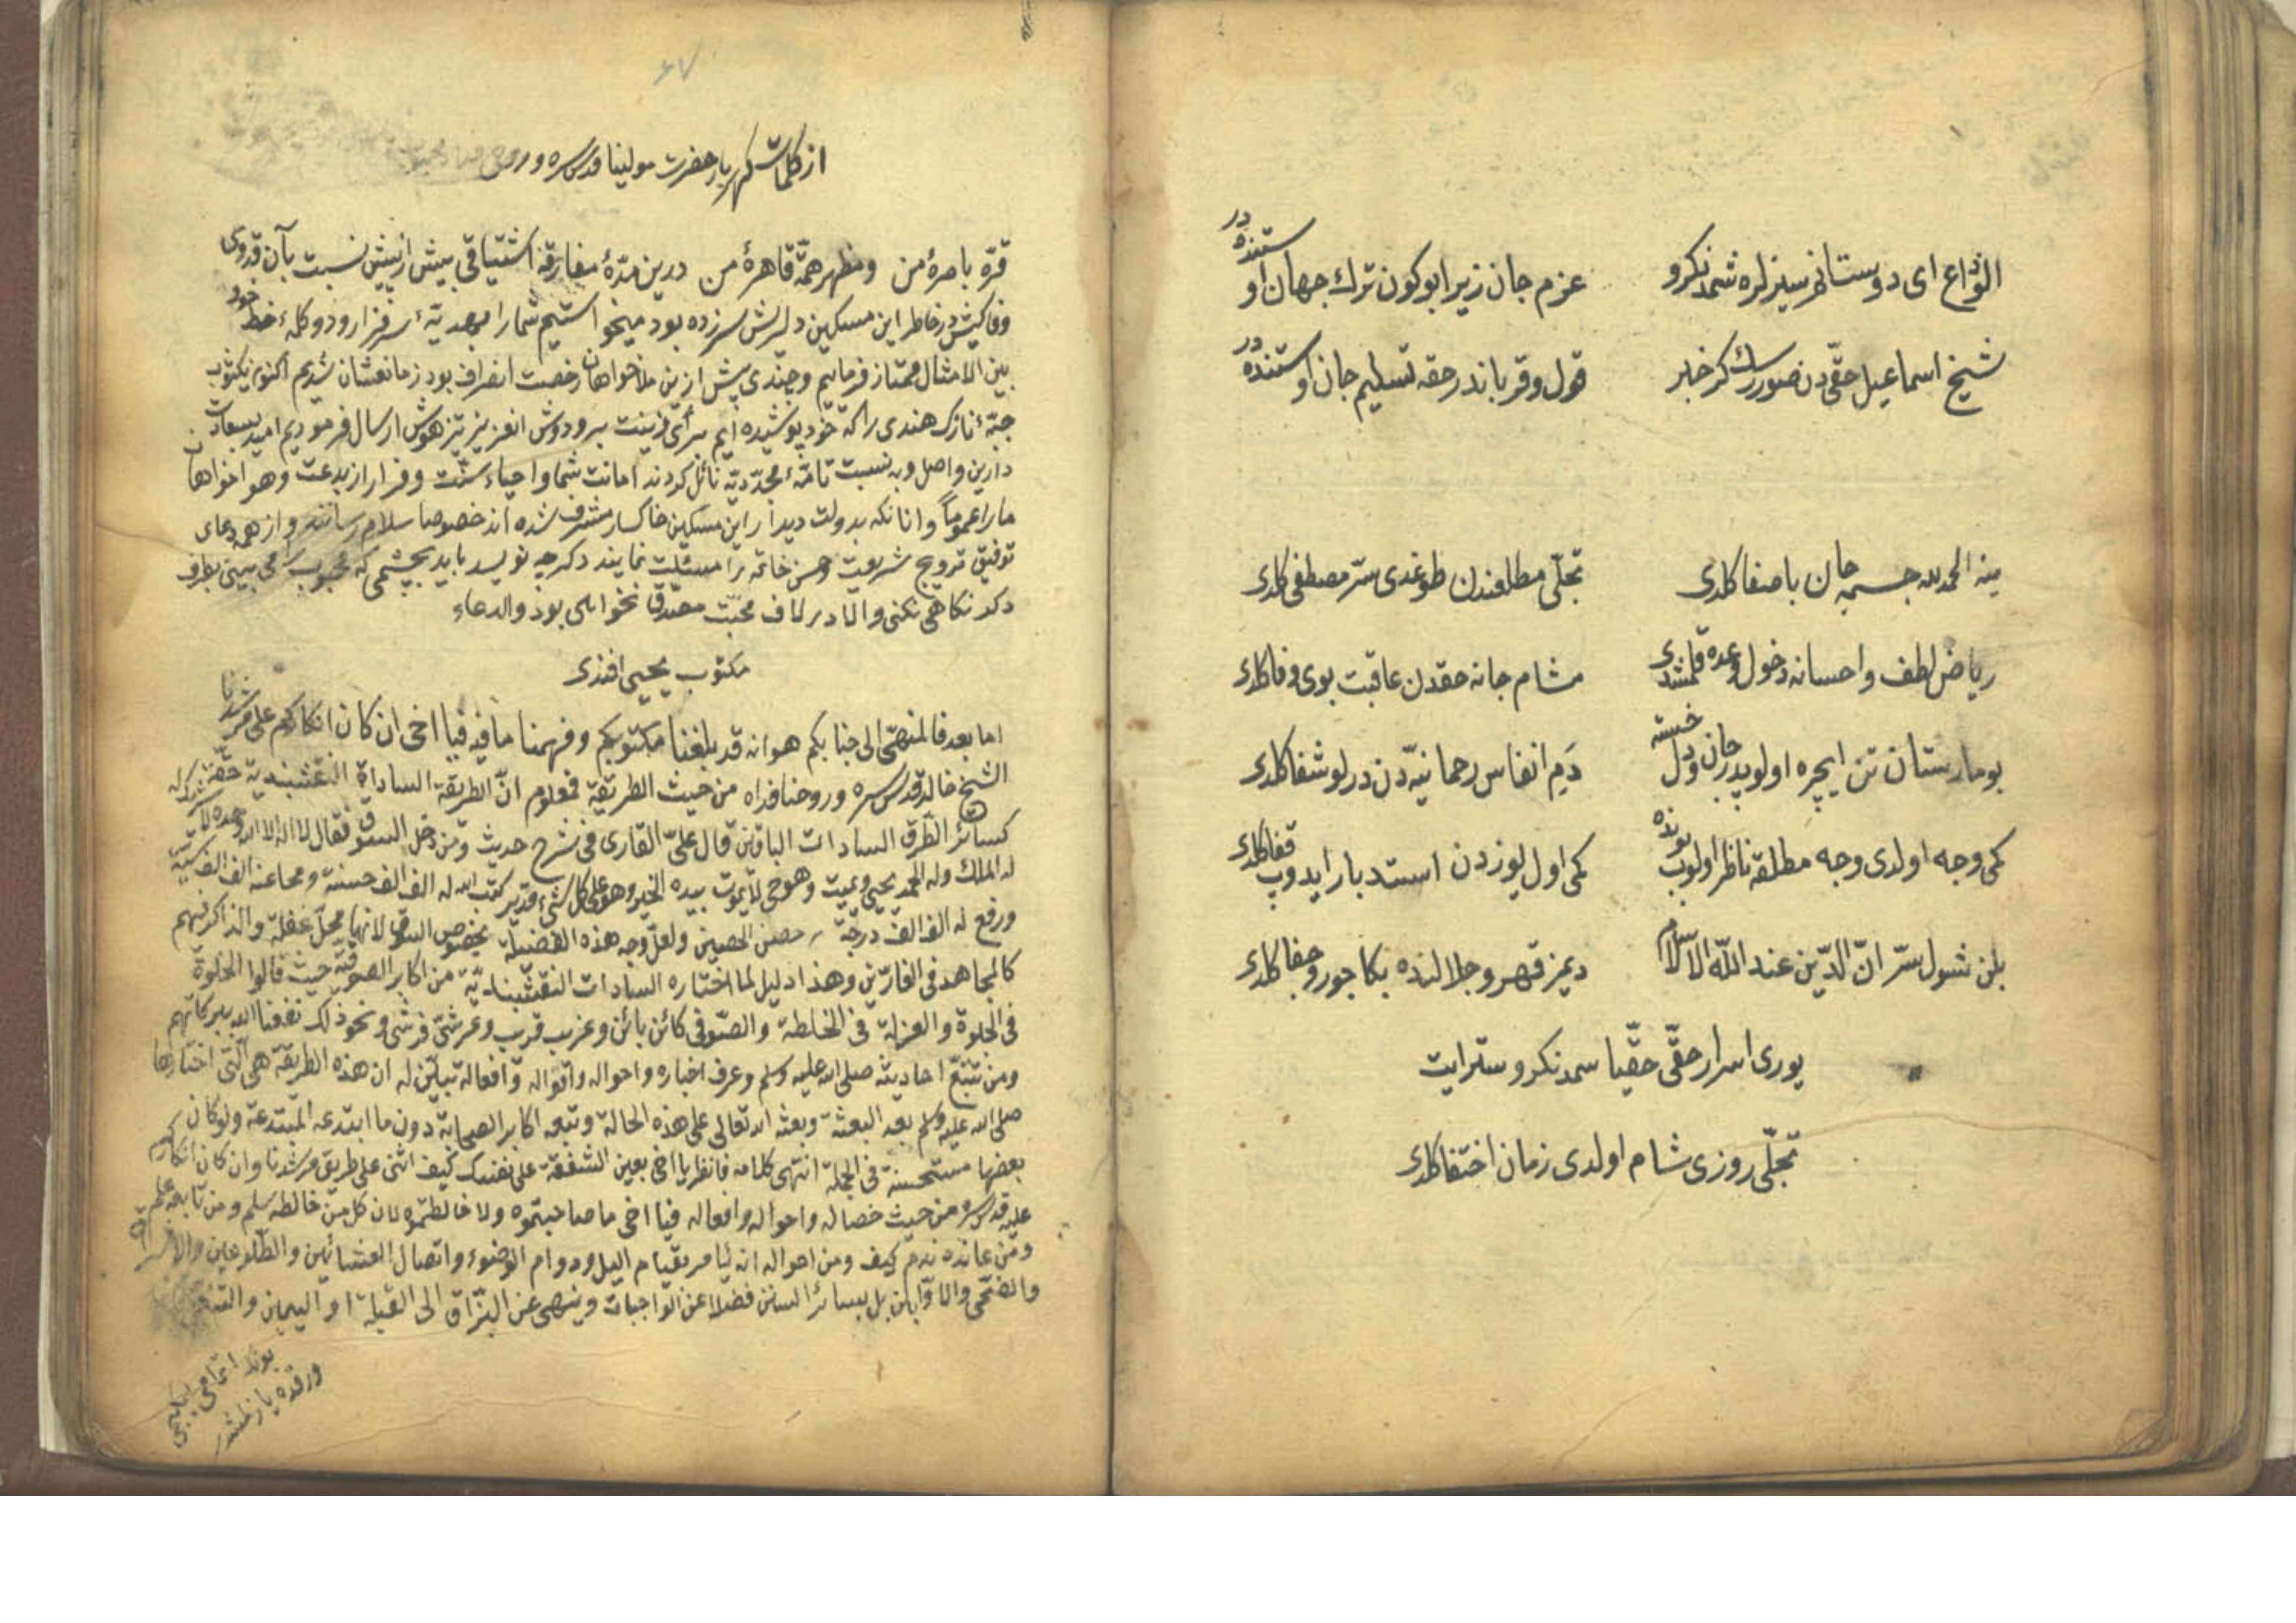 الوداع ای دوستانم سیزلره شمدنکرو
عزم جان زیرا بوکون ترك جهان اوستنده در
شیخ اسماعیل حقّی دن صوررسك کر خبر
قول وقرباندر حقه تسلیم جان اوستنده در
ینه الحمد لله جسمه جان باصفا کلدی
تجلّی مطلعندن طوغدی سرّ مصطفی کلدی
ریاض لطف واحسانه دخول وعده قلمشدی
مشام جانه حقدن عاقبت بوی وفا کلدی
بو مارستان تن ایچره اولوپدر جان ودل خسته
دَمِ انفاس رحمانیّه دن درلو شفا کلدی
کمی وجه اولدی وجه مطلقه ناظر اولوب بونده
کمی اول یوزدن استدبار ایدوب قفا کلدی
بلن شول سرّ انّ الدّین عند اللّه الاسلام
دیمز قهر وجلالنده بکا جور وجفا کلدی
یوری اسرار حقّی حقّیا سمدنکرو ستر ایت
تجلّی روزی شام اولدی زمان اختفا کلدی
٤٧
از کلمات کهربار حضرت مولینا قدس سره وروحی
قرّه باصرهٔ من ومظهر همّهٔ قاهرهٔ من درین مدّهٔ مفارقة اشتیاقی بیش از پیش نسبت بآن قدوی
وفاکیش در خاطر این مسکین دلریش سرزده بود میخواستیم شمارا بهدیّهٔ سرفراز ودو کلهٔ خط خود
بین الامثال ممتاز فرماییم وچندی پیش ازین ملا خواهان رخصت انصراف بود زمانعشان شدیم اکنون
جبّهٔ نازک هندی راکه خود پوشیده ایم برای زینت برودوش انعزیز تیزهوش ارسال فرمودیم امید بسعادت
دارین واصل وبه نسبت تامّهٔ مجدّدیّه نائل کردند امانت شما واحیاء سنّت وفرار از بدعت وهواخواهان
مارا عموماً وانانکه بدولت دیدار این مسکین خاکسار مشرف شده اند خصوصا سلام رسانند واز همه دعای
توفیق ترویج شریعت وحسن خاتمه را مسئلت نمایند دکر چه نویسد باید بچشمی که محبوب می بینی بطرف
دکر نکاهی نکنی والا در لاف محبّت مصدّق نخواهی بود والدعاء
مکتوب یحیی افندی
اما بعد فالمنهیّ الی جنابکم هو انه قد بلغنا مکتوبکم وفهمنا ما فیه فیا اخی ان کان انکارکم علی مرشدنا
الشیخ خالد قدس سره وروحنا فداه من حیث الطریقة فمعلوم انّ الطریقة السادات النقشبندیة حقّة
کسائر الطّرق السادات الباقین قال علیّ القاری فی شرح حدیث ومن دخل السوق فقال لا اله الا الله وحده لا شریک له
له الملك وله الحمد یحیی ویمیت وهو حی لا یموت بیده الخیر وهو علی کل شیء قدیر کتب الله له الف الف حسنة ومحا عنه الف الف سیّئة
ورفع له الف الف درجة حصن الحصین ولعلّ وجه هذه الفضیلة بخصوص السوق لانها محلّ غفلة والذاکر فیهم
کالمجاهد فی الفارّین وهذا دلیل لما اختاره السادات النقشبندیّة من اکابر الصوفیّة حیث قالوا الخلوة
فی الجلوة والعزلة فی الخلطة والصّوفی کائن بائن وغریب قریب وعرشیّ فرشی ونحو ذلك نفعنا الله ببرکاتهم
ومن تتبّع احادیثه صلی الله علیه وسلم وعرف اخباره واحواله واقواله وافعاله تبیّن له ان هذه الطریقة هی الّتی اختارها
صلی الله علیه وسلم بعد البعثة وبعثه الله تعالی علی هذه الحالة وتبعه اکابر الصحابة دون ما ابتدعه المبتدعة ولو کان
بعضها مستحسنة فی الجملة انتهی کلامه فانظر یا اخی بعین الشفقة علی نفسک کیف اثنی علی طریق مرشدنا وان کان انکارکم
علیه قدس سره من حیث خصاله واحواله وافعاله فیا اخی ما صاحبتموه ولا خالطتموه لان کل من خالطه سلم ومن تابعه علم
ومن عانده ندم کیف ومن احواله انه یأمر بقیام اللیل ودوام الوضوء واتصال العشائین والطّلوعین والاشراق
والضّحی والاوّابین بل بسائر السنن فضلا عن الواجبات وینهی عن البزاق الی القبلة او الیمین
بونك اتمامی ایکنجی
ورقده یازلمشدر